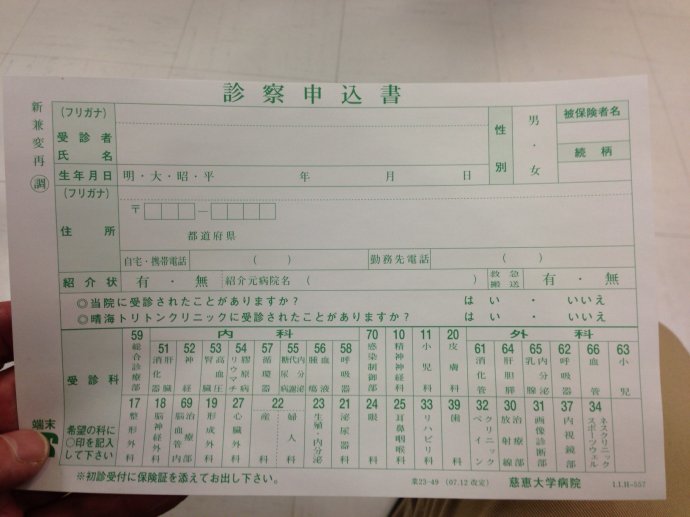 診察申込書
新兼変再
調
(フリガナ)
受診者
氏名
性別
男・女
被保険者名
続柄
生年月日
明・大・昭・平 年 月 日
(フリガナ)
住所
〒 −
都道府県
自宅・携帯電話 ( )
勤務先電話 ( )
紹介状
有・無
紹介元病院名 ( )
救急搬送
有・無
◎当院に受診されたことがありますか？ はい・いいえ
◎晴海トリトンクリニックに受診されたことがありますか？ はい・いいえ
受診科
内科
外科
59 総合診療部
51 消化器 肝臓
52 神経
53 腎臓 高血圧
54 リウマチ 膠原病
57 循環器
55 糖尿代謝 内分泌
56 腫瘍 血液
58 呼吸器
70 感染制御部
10 精神神経科
11 小児科
20 皮膚科
61 消化管
64 肝胆膵
65 乳腺 内分泌
62 呼吸器
66 血管
63 小児
希望の科に
○印を記入
して下さい
17 整形外科
18 脳神経外科
69 脳血管内 治療部
19 形成外科
27 心臓外科
22 産婦人科
23 生殖・内分泌
21 泌尿器科
24 眼科
25 耳鼻咽喉科
33 リハビリ科
39 歯科
32 ペインクリニック
30 放射線 治療部
31 画像診断部
37 内視鏡部
34 スポーツウェルネスクリニック
端末
※初診受付に保険証を添えてお出し下さい。
業23-49 (07.12改定)
慈恵大学病院